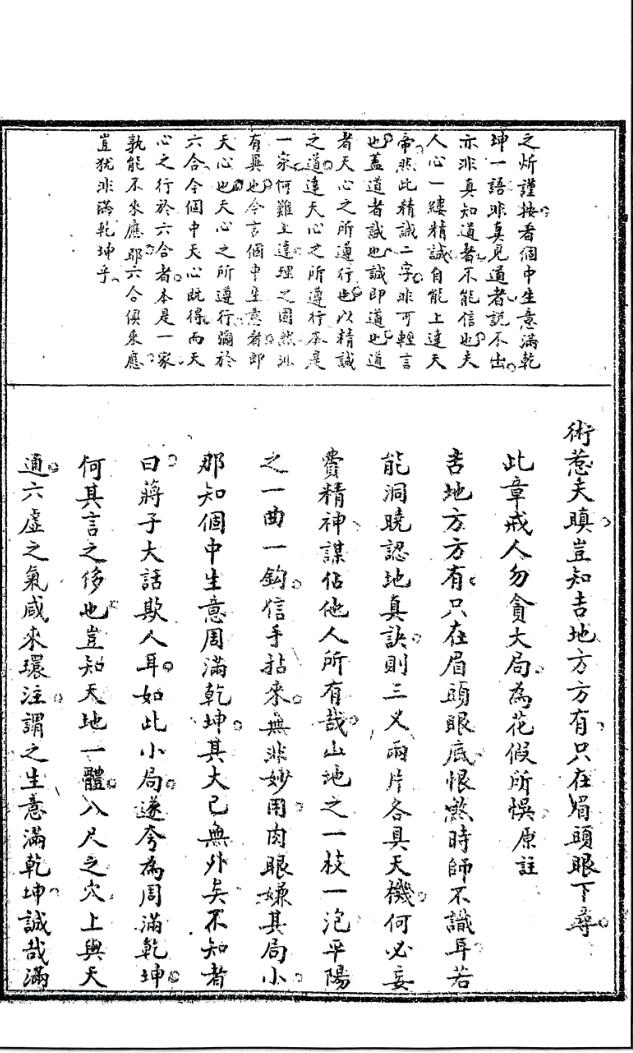 之炘謹按看個中生意滿乾
坤一語非真見道者說不出
亦非真知道者不能信也夫
人心一縷精誠自能上達天
帝然此精誠二字非可輕言
也蓋道者誠也誠即道也道
者天心之所遵行也以精誠
之道達天心之所遵行本是
一家何難上達理之固然洵
有異也今言個中生意者即
天心也天心之所遵行彌於
六合今個中天心既得而天
心之行於六合者本是一家
孰能不來應耶六合俱來應
豈猶非滿乾坤乎
術惹夫瞋豈知吉地方方有只在眉頭眼下尋
此章戒人勿貪大局為花假所悞原註
吉地方方有只在眉頭眼底恨煞時師不識耳若
能洞曉認地真訣則三义兩片各具天機何必妄
費精神謀佔他人所有哉山地之一枝一泡平陽
之一曲一鈎信手拈來無非妙用肉眼嫌其局小
那知個中生意周滿乾坤其大已無外矣不知者
曰蔣子大話欺人耳如此小局遂夸為周滿乾坤
何其言之侈也豈知天地一體八尺之穴上與天
通六虛之氣咸來環注謂之生意滿乾坤誠哉滿